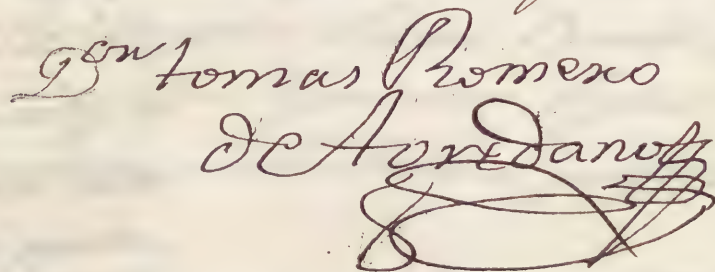 Don tomas Romero
de Avredano